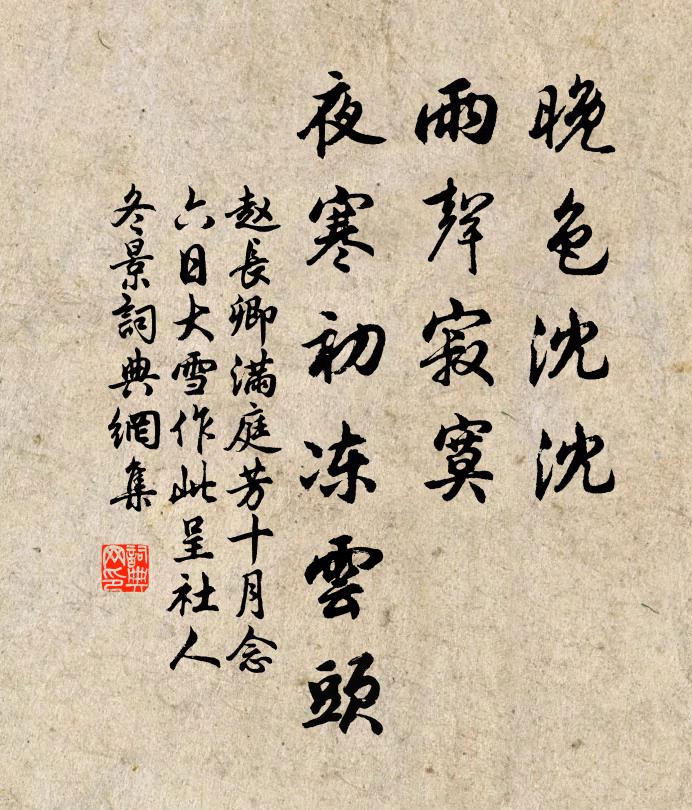 晚色沈沈
雨聲寂寞
夜寒初冻雲頭
赵長卿满庭芳十月念
六日大雪作此呈社人
冬景詞典網集
詞典
网印